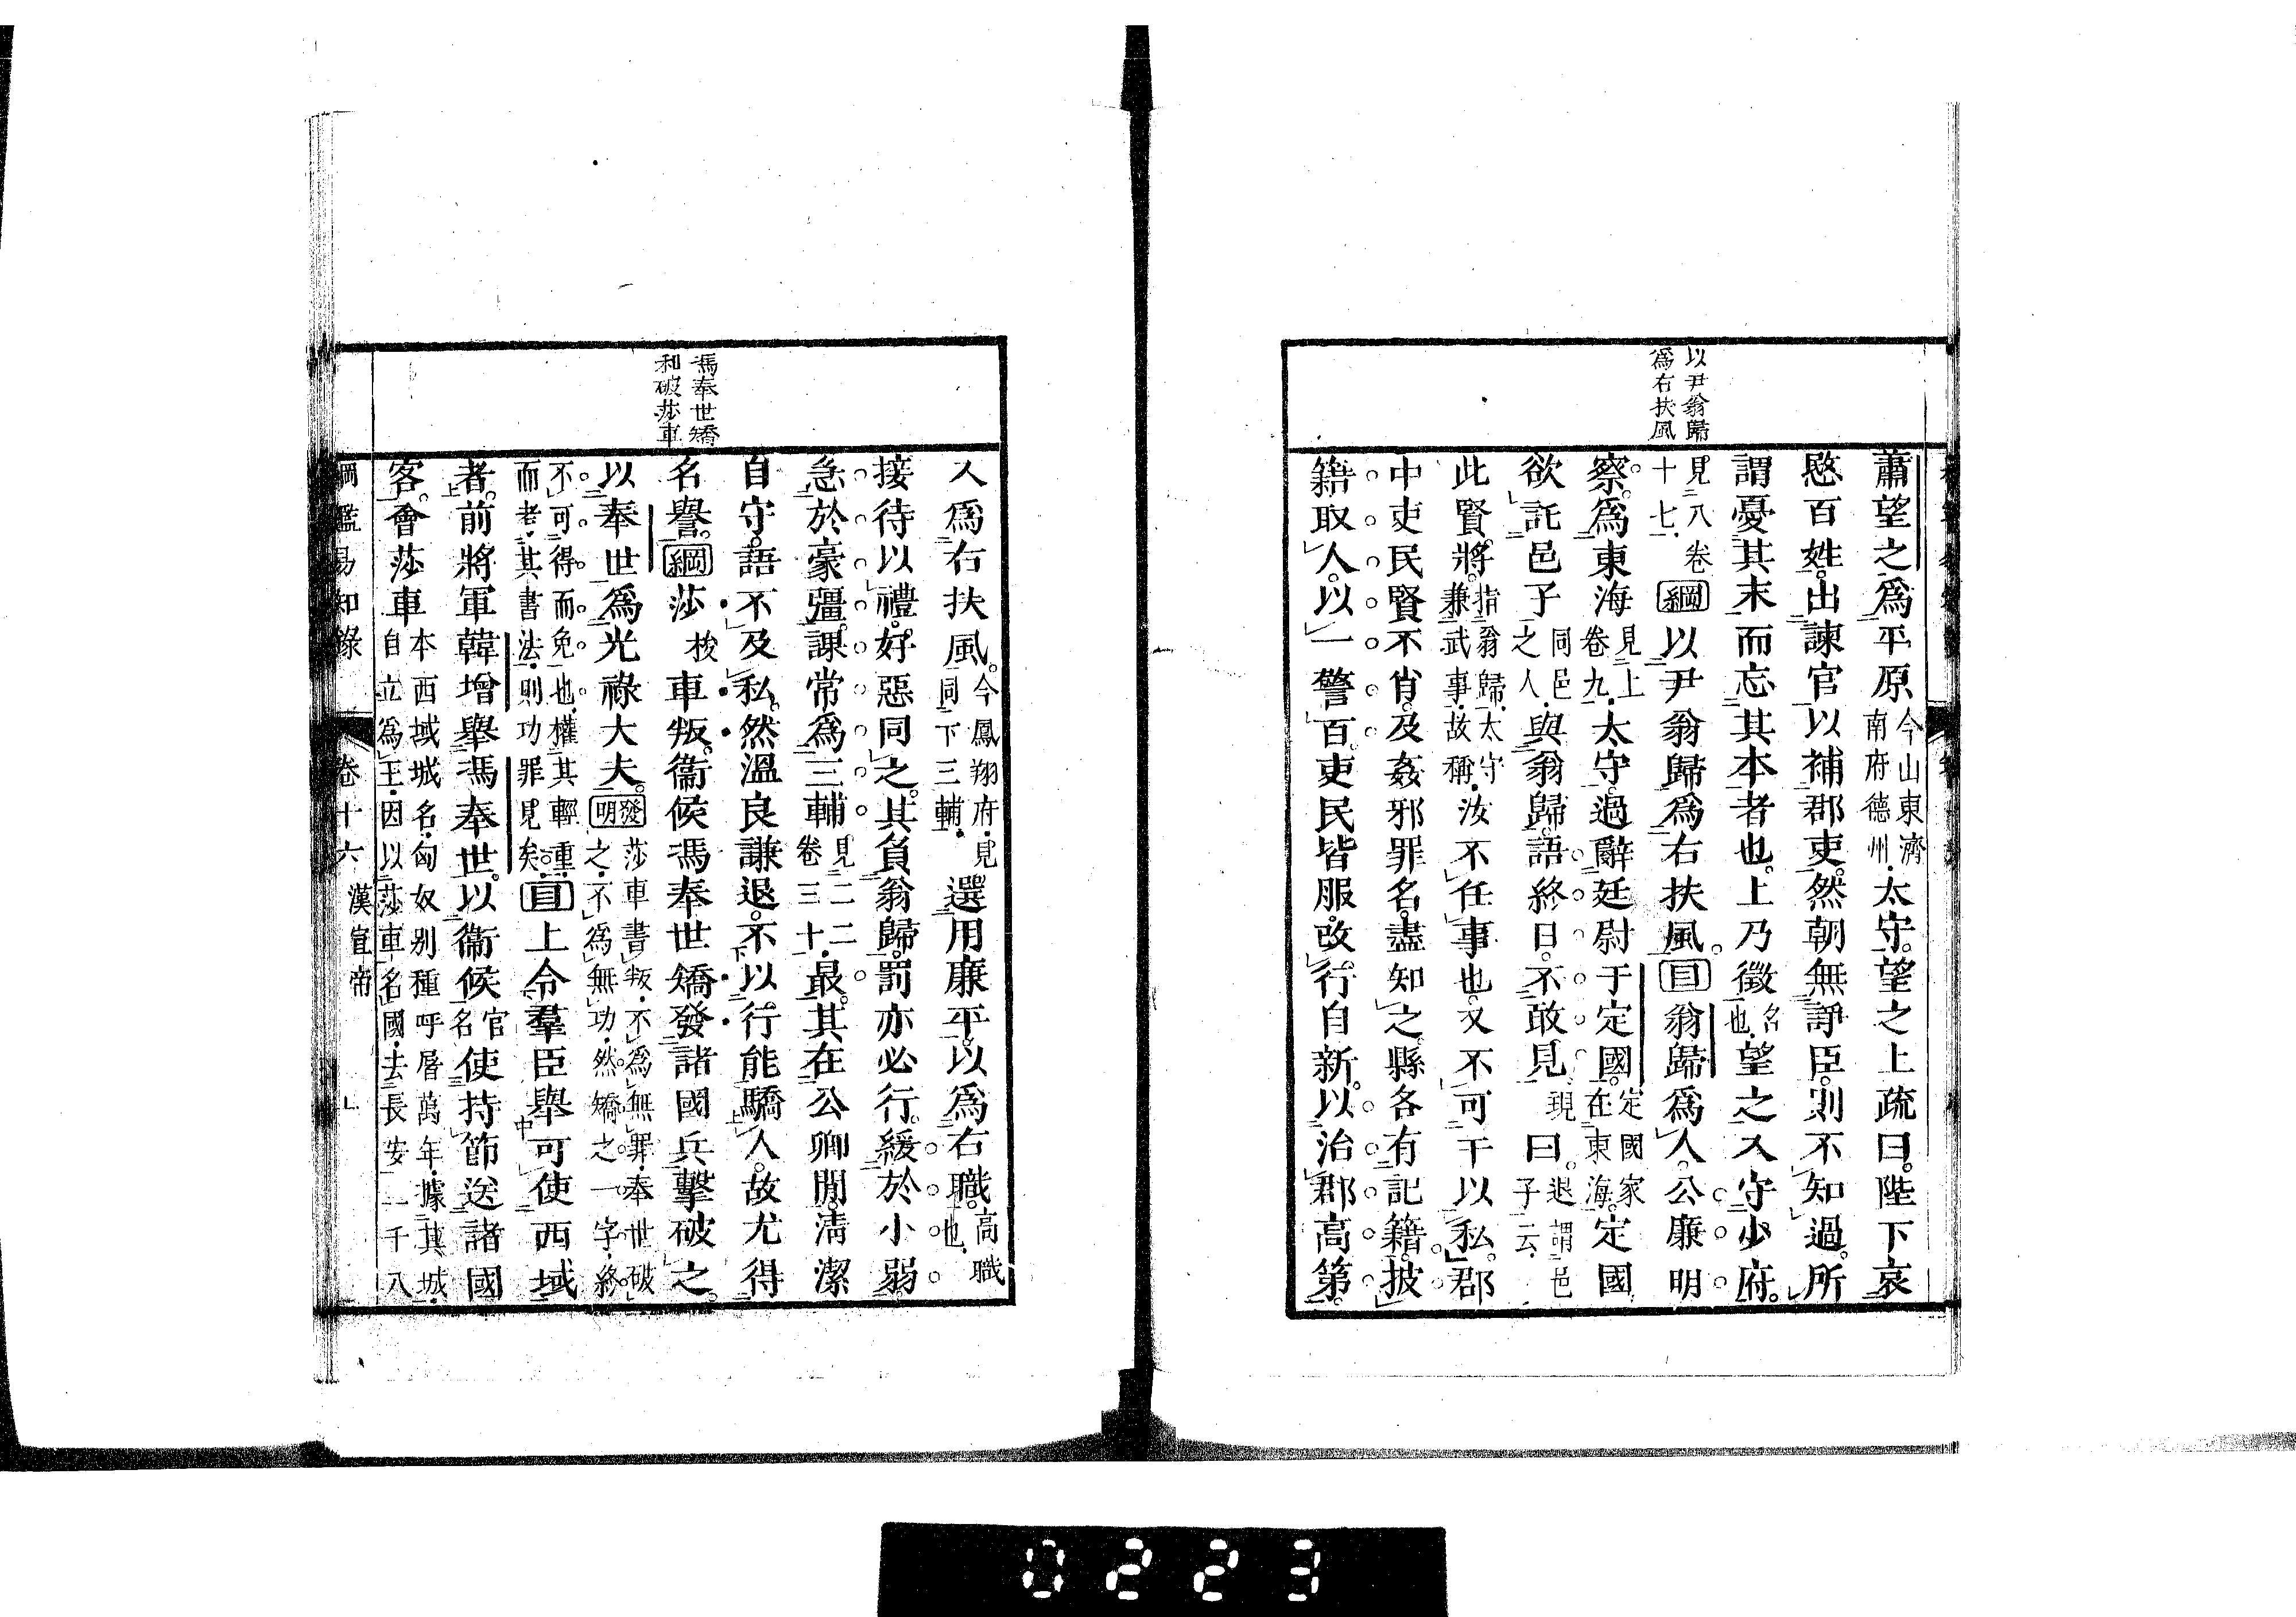 以尹翁歸
爲右扶風
蕭望之爲平原今山東濟南府德州太守。望之上疏曰。陛下哀
愍百姓。出諫官以補郡吏。然朝無諍臣。則不知過。所
謂憂其末而忘其本者也。上乃徵名也望之入守少府。
見八卷十七綱以尹翁歸爲右扶風。目翁歸爲人。公廉明
察。爲東海見上卷九太守。過辭廷尉于定國。定國家在東海。定國
欲託邑子同邑之人與翁歸。語終日。不敢見現曰。退謂邑子云
此賢將。指翁歸太守兼武事故稱汝不任事也。又不可干以私。郡
中吏民賢不肖。及姦邪罪名。盡知之。縣各有記籍。披
籍取人。以一警百。吏民皆服。改行自新。以治郡高第。
馮奉世矯
和破莎車
入爲右扶風。今鳳翔府見同下三輔選用廉平。以爲右職。高職也
接待以禮。好惡同之。其負翁歸。罰亦必行。緩於小弱。
急於豪彊。課常爲三輔見二二卷三十最。其在公卿閒。淸潔
自守。語不及私。然溫良謙退。不以行能驕人。故尤得
名譽。綱莎梭車叛。衞候馮奉世矯發諸國兵擊破之。
以奉世爲光祿大夫。發明莎車書叛不爲無罪奉世破之不爲無功然矯之一字終
不可得而免也權其輕重而考其書法則功罪見矣目上令羣臣舉可使西域
者。前將軍韓增舉馮奉世。以衞候官名使持節送諸國
客。會莎車本西域城名匈奴別種呼屠萬年據其城自立爲王因以莎車名國去長安一千八
綱鑑易知錄 卷十六 漢宣帝
0223